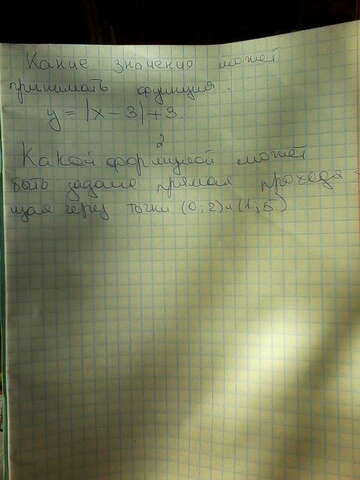 Какие значения может
принимать функция.
y = |x - 3| + 3.
2
Какой формулой может
быть задана прямая проходя -
щая через точки (0;2) и (1;5)